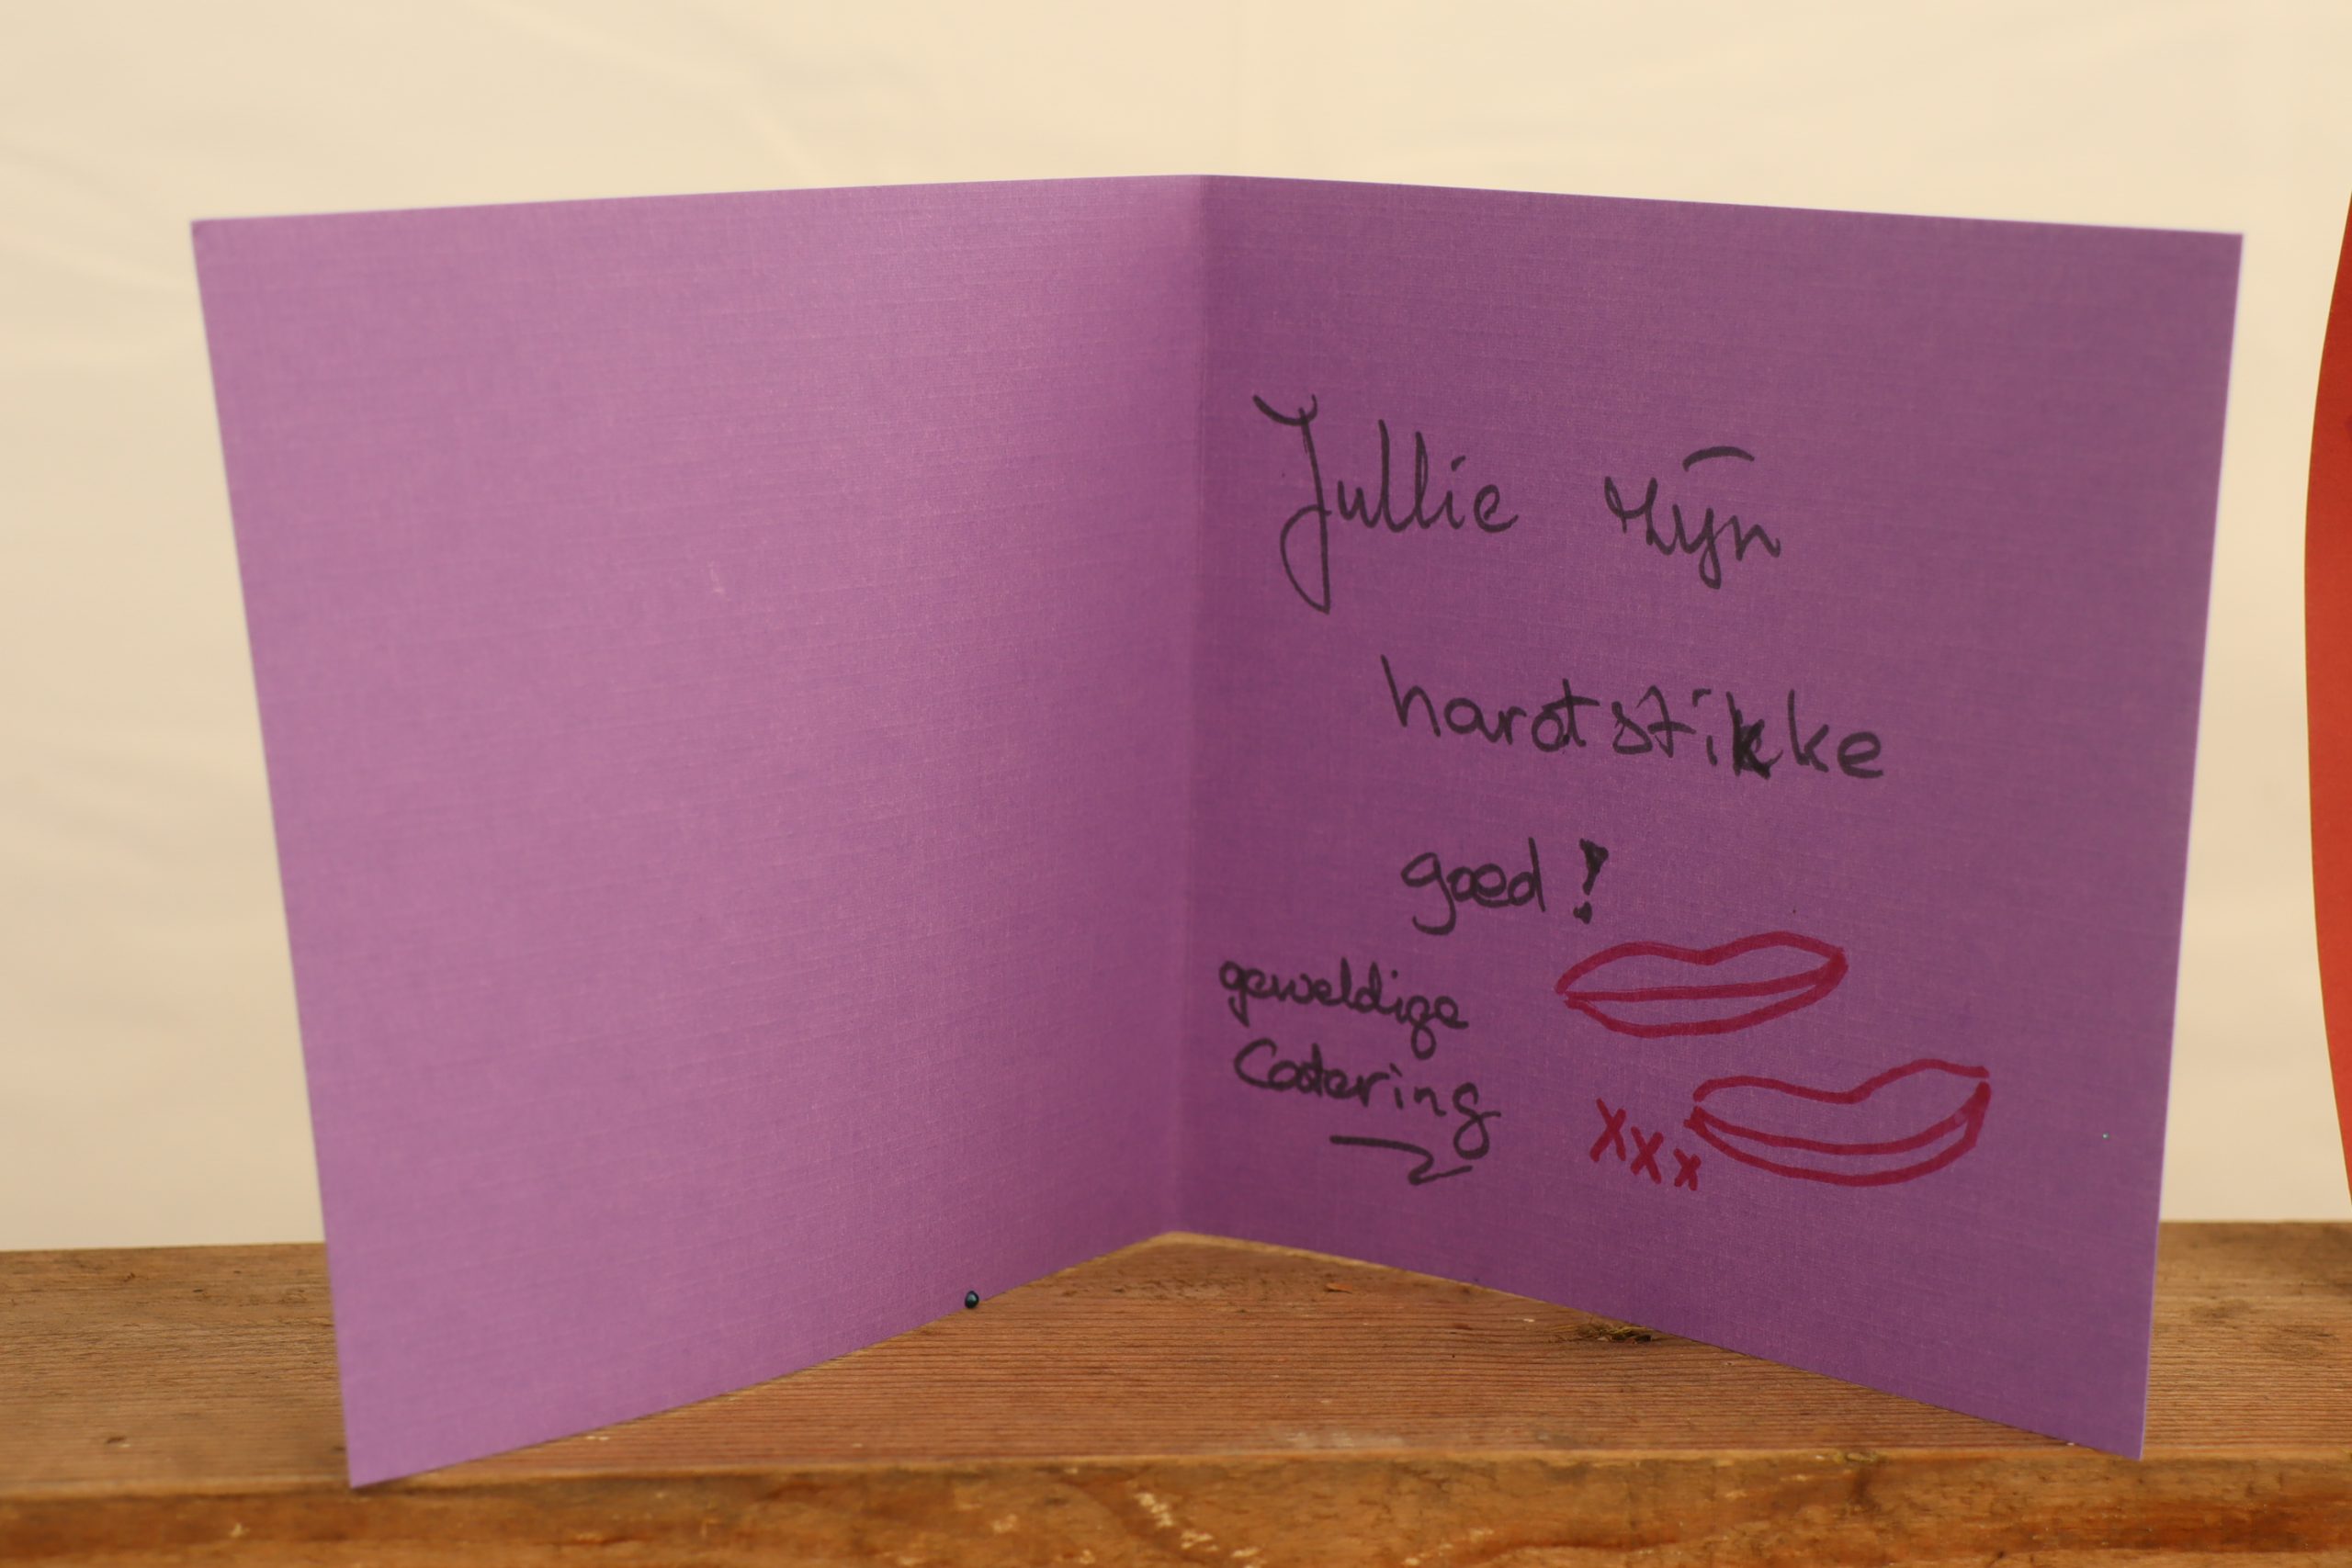 Jullie zijn
hartstikke
goed!
geweldige
Catering
xxx